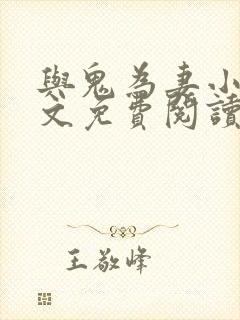 與鬼為妻小
文免費閱讀
王敬峰